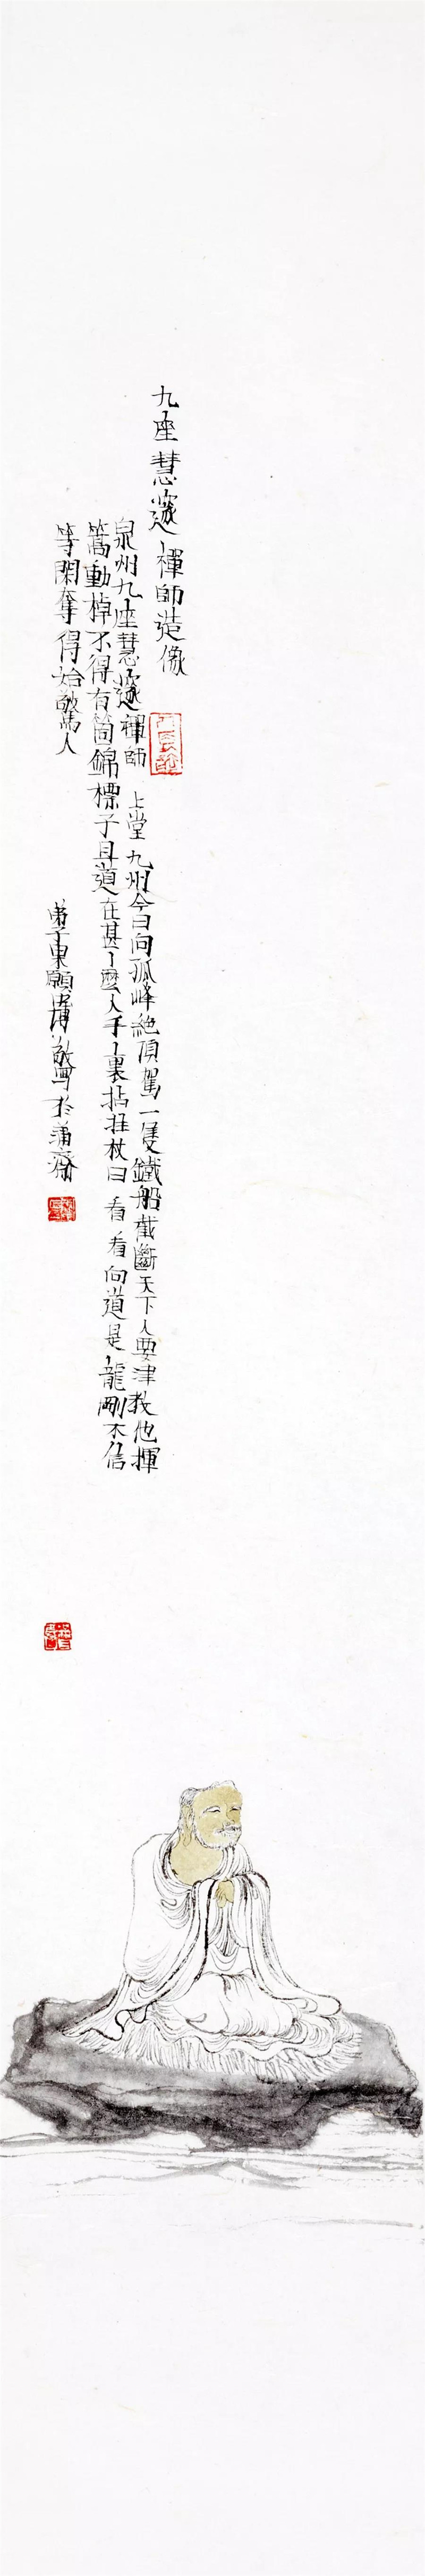 九座慧邃禪師造像
泉州九座慧邃禪師 上堂九州今日向孤峰絶頂駕一隻鐵船截斷天下人要津教他揮
篙動棹不得有箇錦標子且道在甚麽人手裏拈拄杖曰看看向道是龍剛不信
等閑奪得始驚人
弟子果願博敬寫於蒲齋